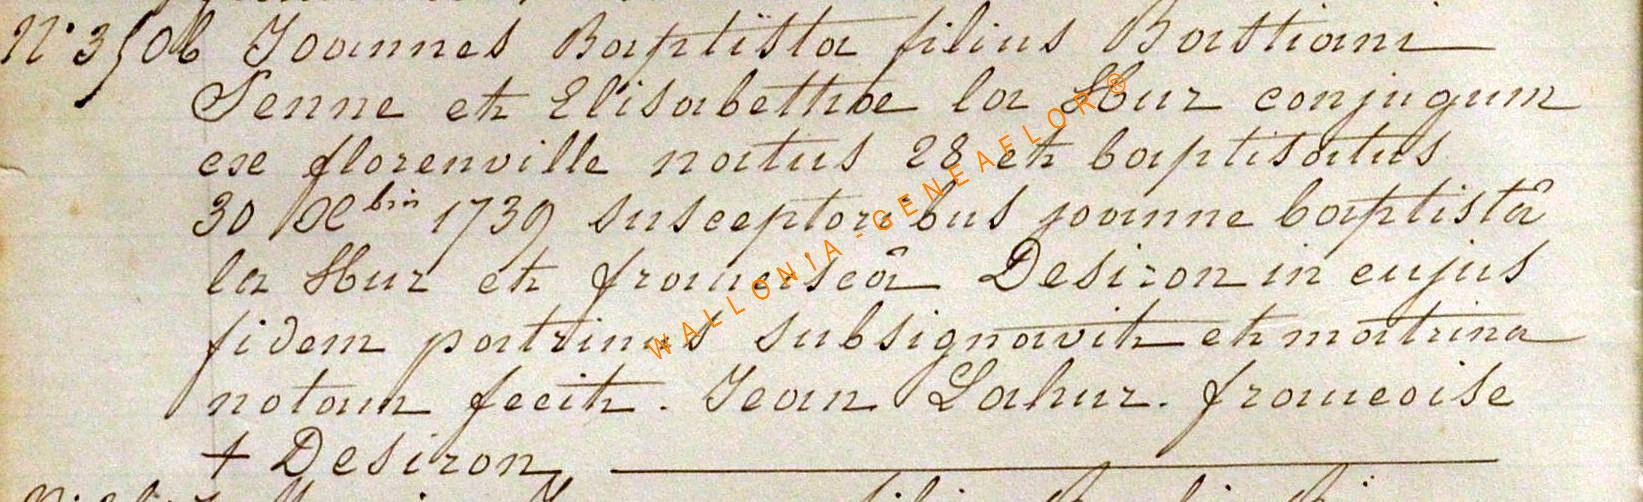 N° 350b Joannes Baptista filius Bastiani
Senne et Elisabethae la Hur conjugum
ex florenville natus 28 et baptisatus
30 Xbris 1739 susceptoribus joanne baptistâ
la Hur et franciscâ Desiron in cujus
fidem patrinus subsignavit et matrina
notam fecit. Jean Lahur. francoise
+ Desiron
WALLONIA-GENEAFLOR®